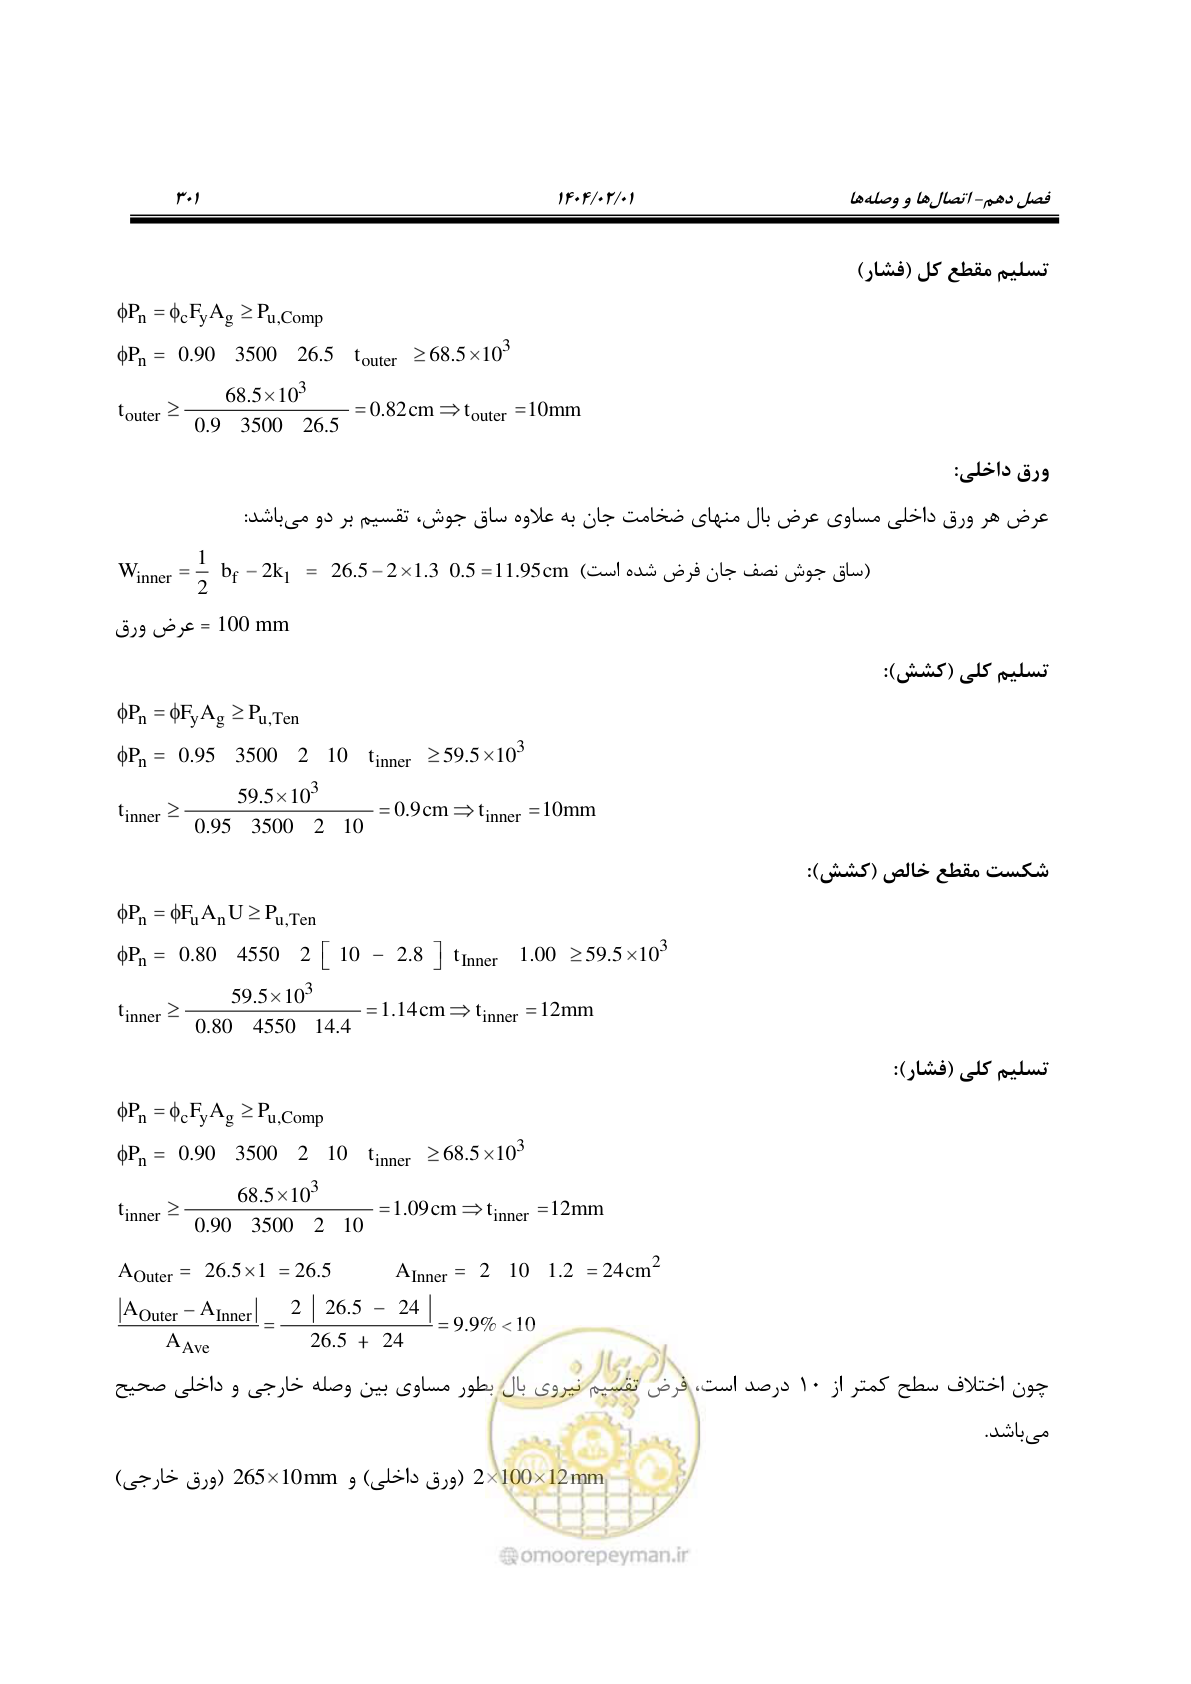 فصل دهم- اتصال‌ها و وصله‌ها ۱۴۰۴/۰۲/۰۱ ۳۰۱
تسلیم مقطع کل (فشار)
ϕPn = ϕcFyAg ≥ Pu,Comp
ϕPn = 0.90 3500 26.5 touter ≥ 68.5×10^3
touter ≥ 68.5×10^3 / 0.9 3500 26.5 = 0.82cm ⇒ touter = 10mm
ورق داخلی:
عرض هر ورق داخلی مساوی عرض بال منهای ضخامت جان به علاوه ساق جوش، تقسیم بر دو می‌باشد:
Winner = 1/2 bf − 2k1 = 26.5 − 2×1.3 0.5 = 11.95cm (ساق جوش نصف جان فرض شده است)
عرض ورق = 100 mm
تسلیم کلی (کشش):
ϕPn = ϕFyAg ≥ Pu,Ten
ϕPn = 0.95 3500 2 10 tinner ≥ 59.5×10^3
tinner ≥ 59.5×10^3 / 0.95 3500 2 10 = 0.9cm ⇒ tinner = 10mm
شکست مقطع خالص (کشش):
ϕPn = ϕFuAnU ≥ Pu,Ten
ϕPn = 0.80 4550 2 [ 10 − 2.8 ] tInner 1.00 ≥ 59.5×10^3
tinner ≥ 59.5×10^3 / 0.80 4550 14.4 = 1.14cm ⇒ tinner = 12mm
تسلیم کلی (فشار):
ϕPn = ϕcFyAg ≥ Pu,Comp
ϕPn = 0.90 3500 2 10 tinner ≥ 68.5×10^3
tinner ≥ 68.5×10^3 / 0.90 3500 2 10 = 1.09cm ⇒ tinner = 12mm
AOuter = 26.5×1 = 26.5 AInner = 2 10 1.2 = 24cm^2
|AOuter − AInner| / AAve = 2 | 26.5 − 24 | / 26.5 + 24 = 9.9% < 10
چون اختلاف سطح کمتر از ۱۰ درصد است، فرض تقسیم نیروی بال بطور مساوی بین وصله خارجی و داخلی صحیح
می‌باشد.
2×100×12mm (ورق داخلی) و 265×10mm (ورق خارجی)
امور پیمان
@omoorepeyman.ir